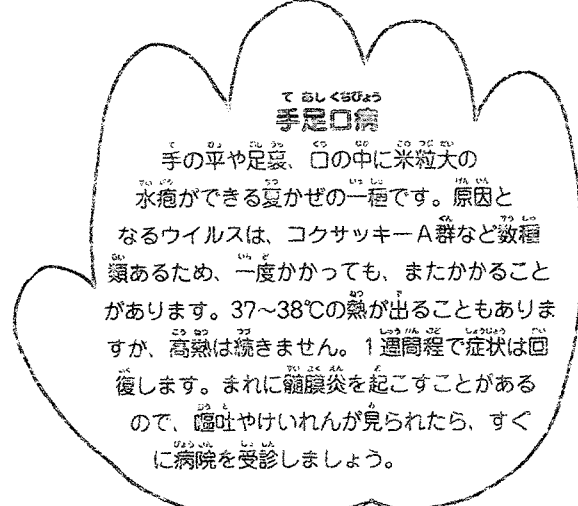 てあしくちびょう
手足口病
手の平や足裏、口の中に米粒大の
水疱ができる夏かぜの一種です。原因と
なるウイルスは、コクサッキーA群など数種
類あるため、一度かかっても、またかかること
があります。37～38℃の熱が出ることもありま
すが、高熱は続きません。1週間程で症状は回
復します。まれに髄膜炎を起こすことがある
ので、嘔吐やけいれんが見られたら、すぐ
に病院を受診しましょう。